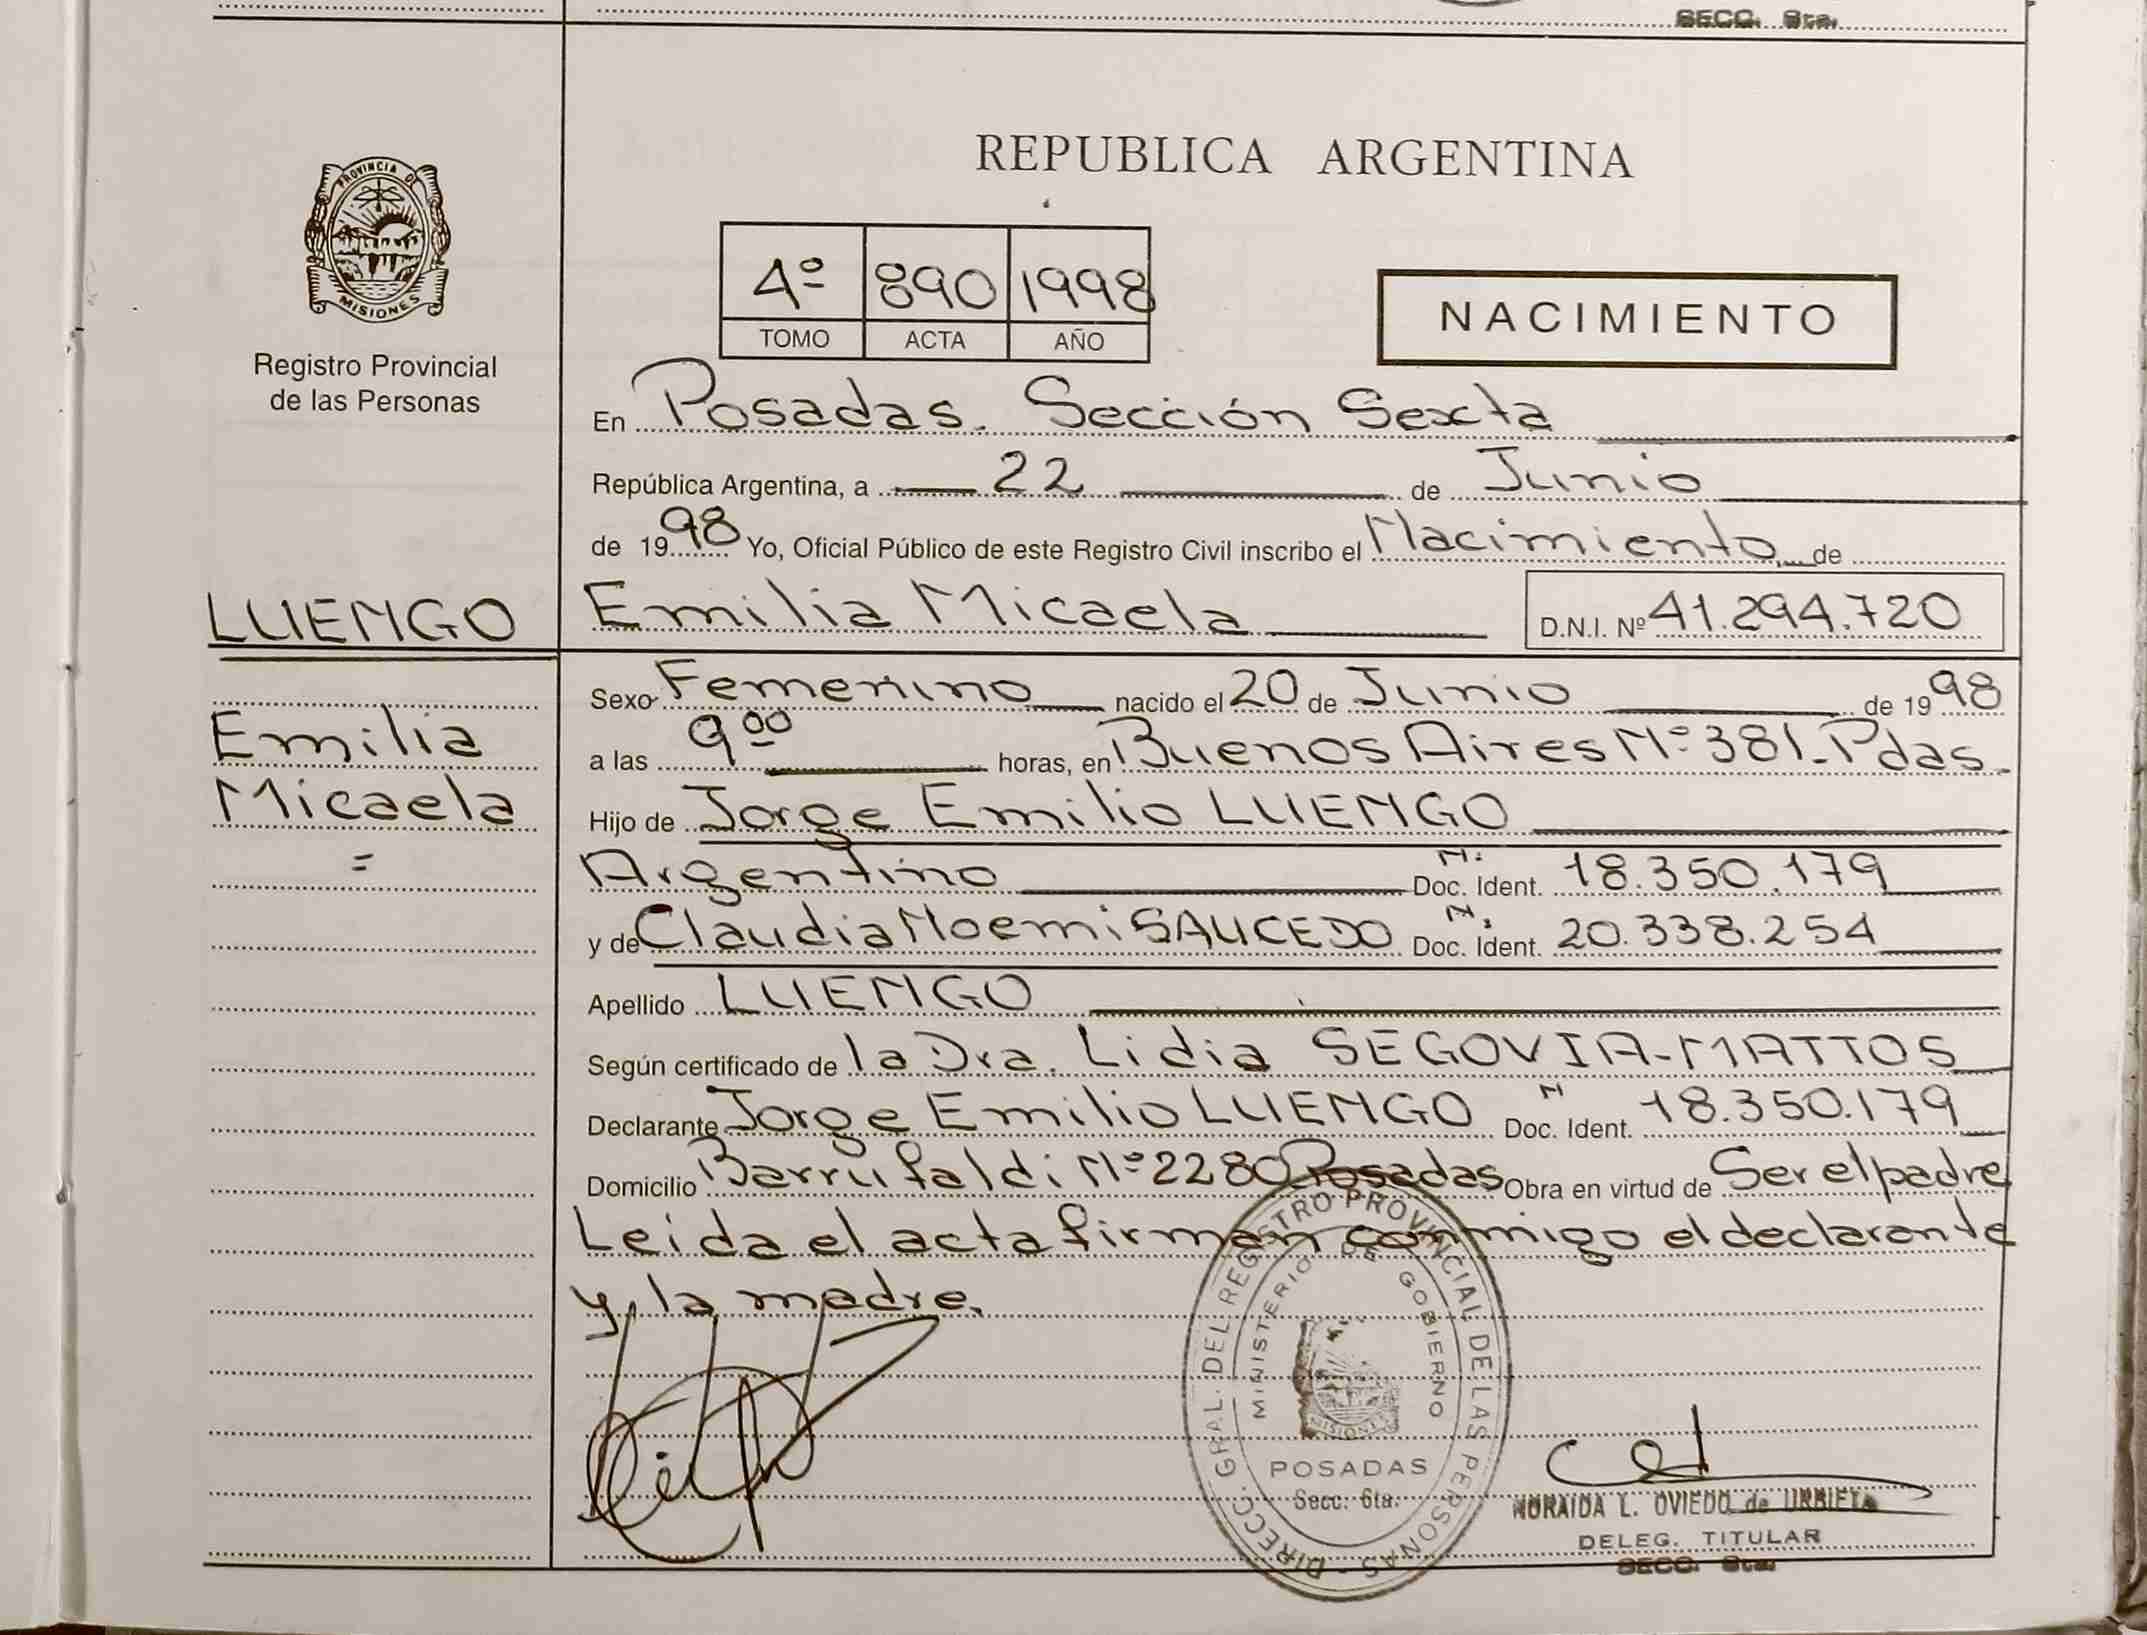 SECC. 6ta.
REPUBLICA ARGENTINA
PROVINCIA DE
MISIONES
4º 890 1998
TOMO ACTA AÑO
NACIMIENTO
Registro Provincial
de las Personas
En Posadas. Sección Sexta
República Argentina, a 22 de Junio
de 1998 Yo, Oficial Público de este Registro Civil inscribo el Nacimiento, de
LUENGO Emilia Micaela D.N.I. Nº 41.294.720
Sexo Femenino nacido el 20 de Junio de 1998
Emilia
a las 9⁰⁰ horas, en Buenos Aires Nº 381. Pdas.
Micaela
Hijo de Jorge Emilio LUENGO
=
Argentino N. Doc. Ident. 18.350.179
y de Claudia Noemi SAUCEDO N. Doc. Ident. 20.338.254
Apellido LUENGO
Según certificado de la Dra. Lidia SEGOVIA-MATTOS
Declarante Jorge Emilio LUENGO N Doc. Ident. 18.350.179
Domicilio Barrufaldi Nº 2280 Posadas Obra en virtud de Ser el padre
Leida el acta firman conmigo el declarante
y la madre.
DIRECC. GRAL. DEL REGISTRO PROVINCIAL DE LAS PERSONAS
MINISTERIO DE GOBIERNO
MISIONES
POSADAS
Secc. 6ta.
NORAIDA L. OVIEDO de URBIETA
DELEG. TITULAR
SECC. 6ta.